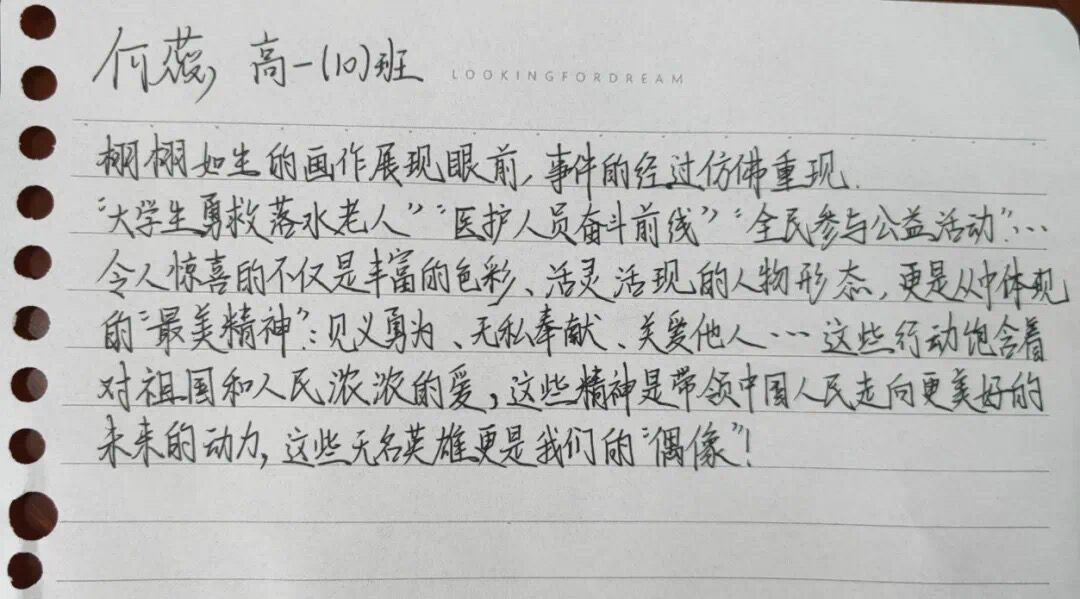 何蕊 高一(10)班
LOOKINGFORDREAM
栩栩如生的画作展现眼前,事件的经过仿佛重现.
“大学生勇救落水老人”“医护人员奋斗前线”“全民参与公益活动”…
令人惊喜的不仅是丰富的色彩、活灵活现的人物形态,更是从中体现
的“最美精神”:见义勇为、无私奉献、关爱他人…这些行动饱含着
对祖国和人民浓浓的爱,这些精神是带领中国人民走向更美好的
未来的动力,这些无名英雄更是我们的“偶像”!